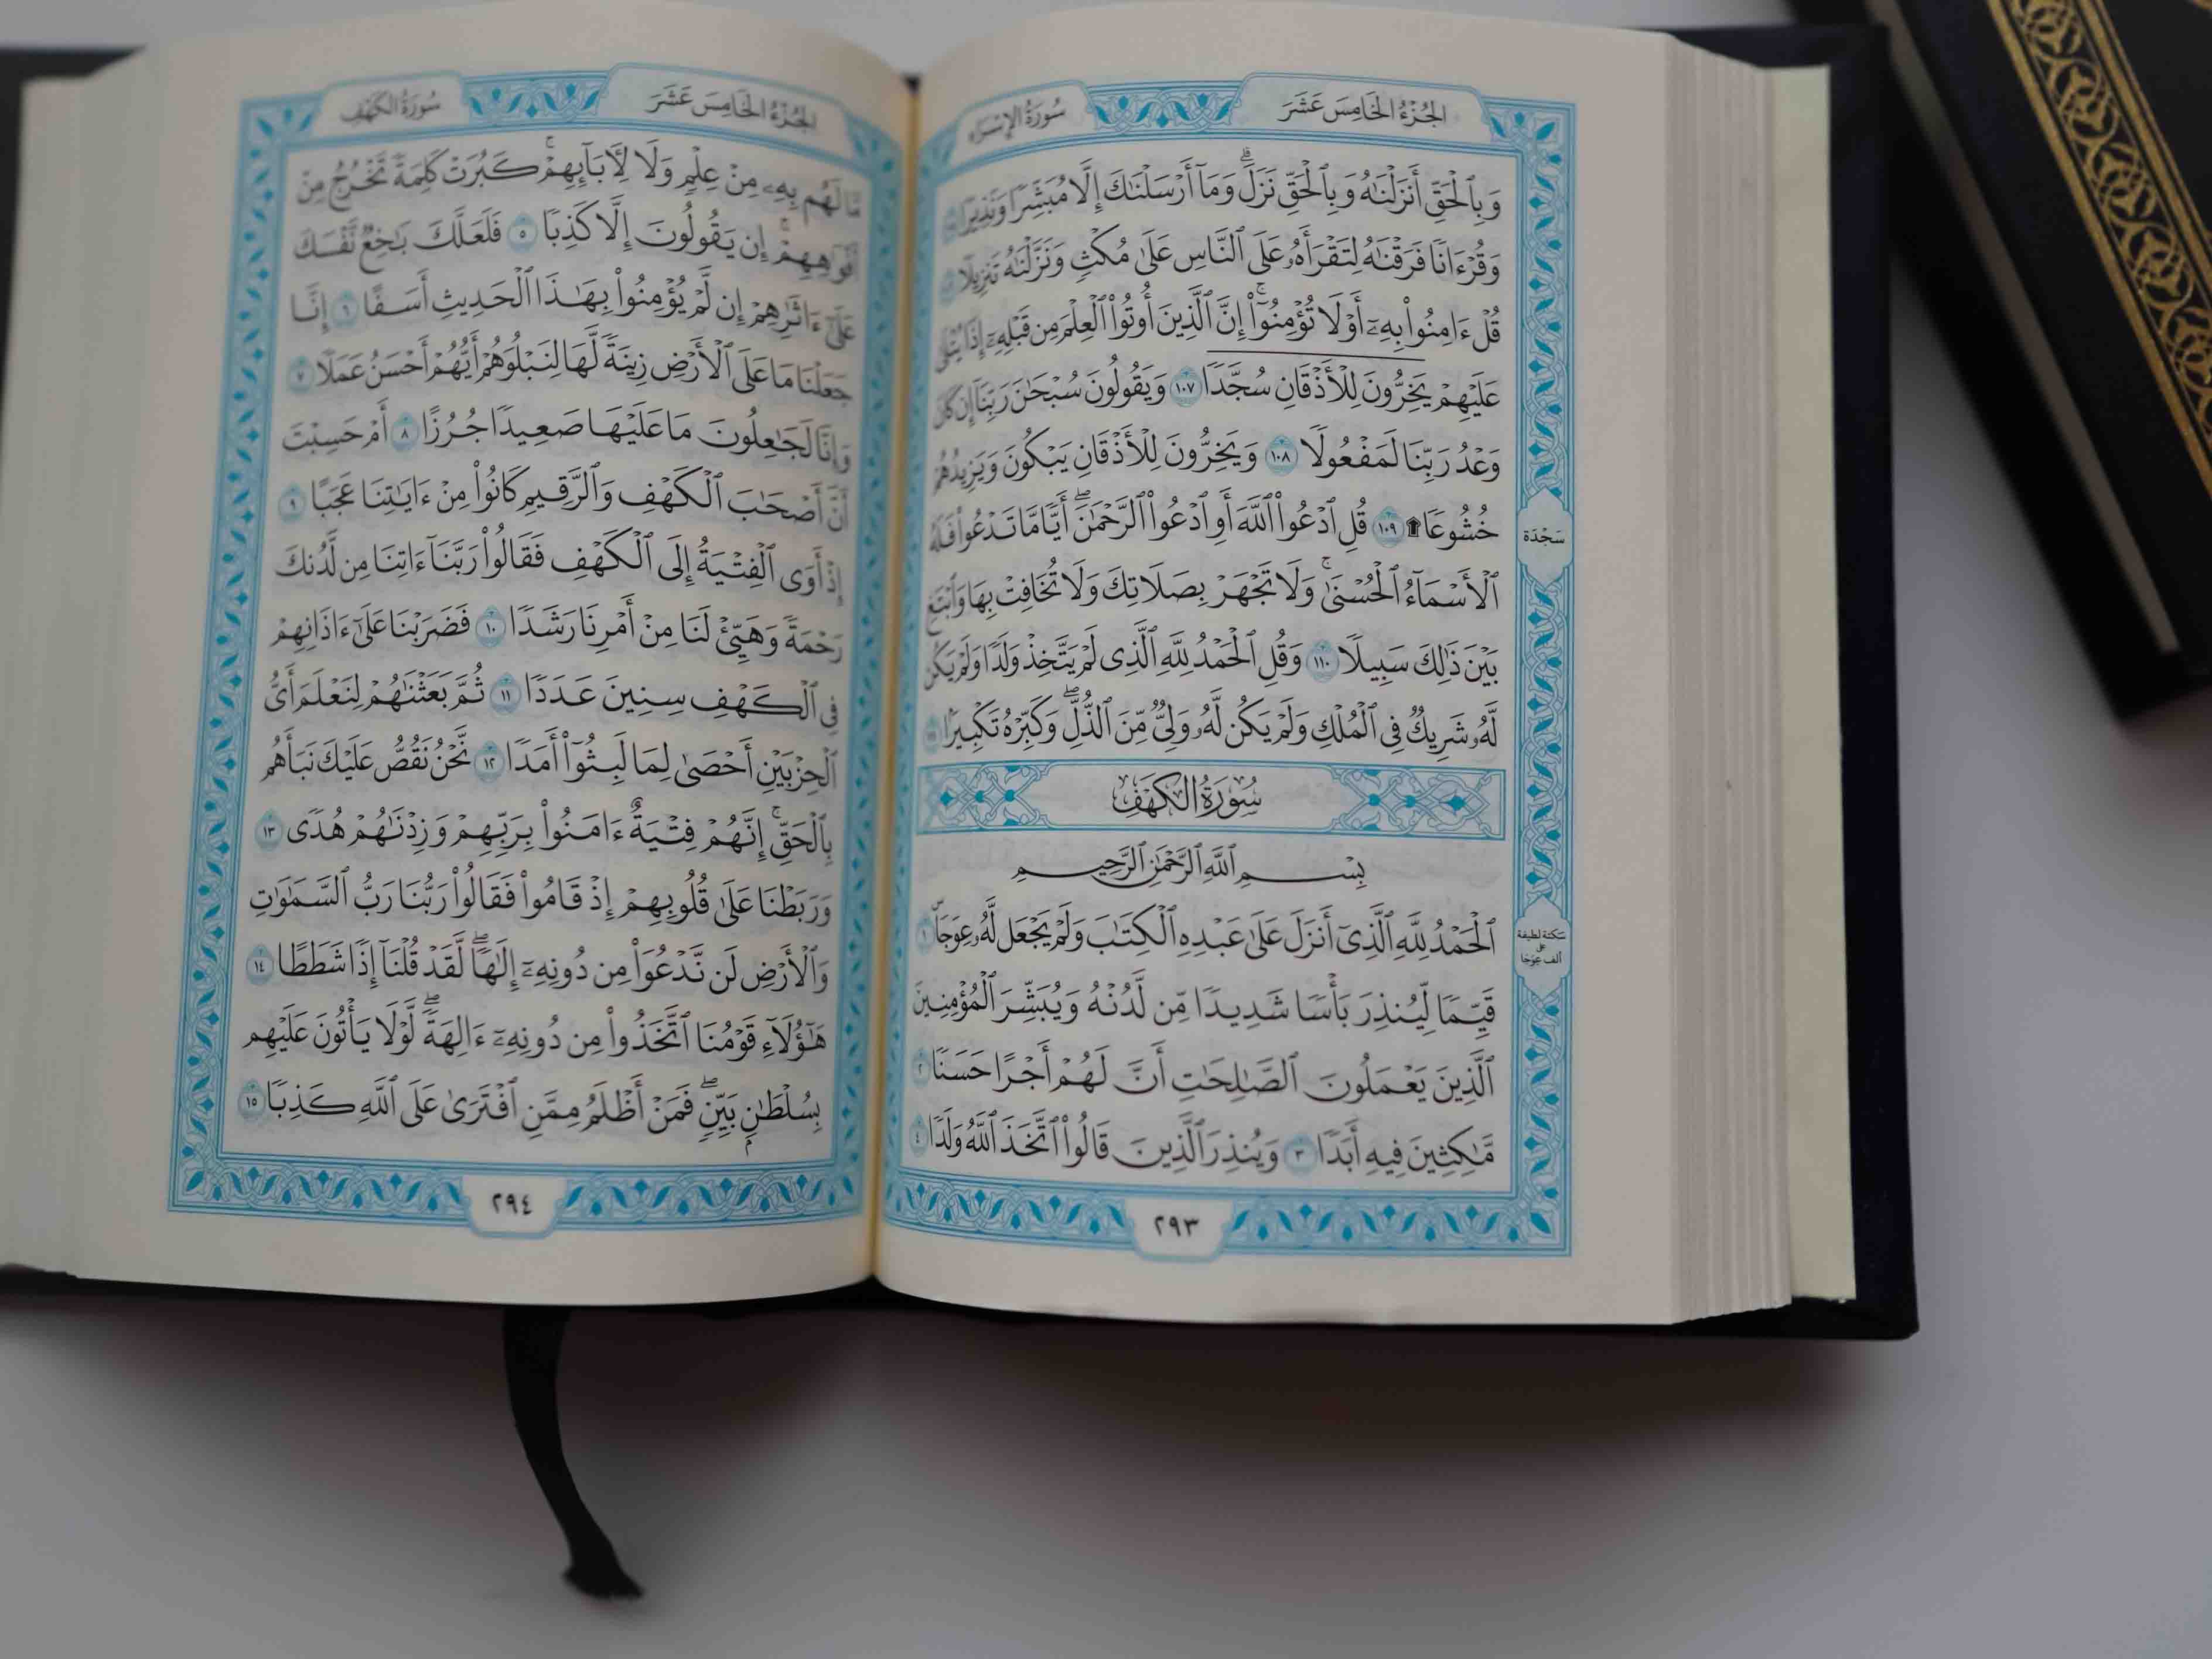 الجُزْءُ الخَامِسَ عَشَرَ
سُورَةُ الإِسْرَاءِ
وَبِٱلْحَقِّ أَنزَلْنَٰهُ وَبِٱلْحَقِّ نَزَلَۗ وَمَآ أَرْسَلْنَٰكَ إِلَّا مُبَشِّرًا وَنَذِيرًا
وَقُرْءَانًا فَرَقْنَٰهُ لِتَقْرَأَهُۥ عَلَى ٱلنَّاسِ عَلَىٰ مُكْثٍ وَنَزَّلْنَٰهُ تَنزِيلًا
قُلْ ءَامِنُوا۟ بِهِۦٓ أَوْ لَا تُؤْمِنُوٓا۟ۚ إِنَّ ٱلَّذِينَ أُوتُوا۟ ٱلْعِلْمَ مِن قَبْلِهِۦٓ إِذَا يُتْلَىٰ
عَلَيْهِمْ يَخِرُّونَ لِلْأَذْقَانِ سُجَّدًا ١٠٧ وَيَقُولُونَ سُبْحَٰنَ رَبِّنَآ إِن كَانَ
وَعْدُ رَبِّنَا لَمَفْعُولًا ١٠٨ وَيَخِرُّونَ لِلْأَذْقَانِ يَبْكُونَ وَيَزِيدُهُمْ
خُشُوعًا ۩ ١٠٩ قُلِ ٱدْعُوا۟ ٱللَّهَ أَوِ ٱدْعُوا۟ ٱلرَّحْمَٰنَۖ أَيًّا مَّا تَدْعُوا۟ فَلَهُ
سَجْدَة
ٱلْأَسْمَآءُ ٱلْحُسْنَىٰۚ وَلَا تَجْهَرْ بِصَلَاتِكَ وَلَا تُخَافِتْ بِهَا وَٱبْتَغِ
بَيْنَ ذَٰلِكَ سَبِيلًا ١١٠ وَقُلِ ٱلْحَمْدُ لِلَّهِ ٱلَّذِى لَمْ يَتَّخِذْ وَلَدًا وَلَمْ يَكُن
لَّهُۥ شَرِيكٌ فِى ٱلْمُلْكِ وَلَمْ يَكُن لَّهُۥ وَلِىٌّ مِّنَ ٱلذُّلِّۖ وَكَبِّرْهُ تَكْبِيرًۢا ١١١
سُورَةُ الكَهْفِ
بِسْمِ ٱللَّهِ ٱلرَّحْمَٰنِ ٱلرَّحِيمِ
ٱلْحَمْدُ لِلَّهِ ٱلَّذِىٓ أَنزَلَ عَلَىٰ عَبْدِهِ ٱلْكِتَٰبَ وَلَمْ يَجْعَل لَّهُۥ عِوَجَاۜ ١
سكتة لطيفة
على
ألف عِوَجَا
قَيِّمًا لِّيُنذِرَ بَأْسًا شَدِيدًا مِّن لَّدُنْهُ وَيُبَشِّرَ ٱلْمُؤْمِنِينَ
ٱلَّذِينَ يَعْمَلُونَ ٱلصَّٰلِحَٰتِ أَنَّ لَهُمْ أَجْرًا حَسَنًا ٢
مَّٰكِثِينَ فِيهِ أَبَدًا ٣ وَيُنذِرَ ٱلَّذِينَ قَالُوا۟ ٱتَّخَذَ ٱللَّهُ وَلَدًا ٤
٢٩٣
الجُزْءُ الخَامِسَ عَشَرَ
سُورَةُ الكَهْفِ
مَّا لَهُم بِهِۦ مِنْ عِلْمٍ وَلَا لِءَابَآئِهِمْۚ كَبُرَتْ كَلِمَةً تَخْرُجُ مِنْ
أَفْوَٰهِهِمْۚ إِن يَقُولُونَ إِلَّا كَذِبًا ٥ فَلَعَلَّكَ بَٰخِعٌ نَّفْسَكَ
عَلَىٰٓ ءَاثَٰرِهِمْ إِن لَّمْ يُؤْمِنُوا۟ بِهَٰذَا ٱلْحَدِيثِ أَسَفًا ٦ إِنَّا
جَعَلْنَا مَا عَلَى ٱلْأَرْضِ زِينَةً لَّهَا لِنَبْلُوَهُمْ أَيُّهُمْ أَحْسَنُ عَمَلًا ٧
وَإِنَّا لَجَٰعِلُونَ مَا عَلَيْهَا صَعِيدًا جُرُزًا ٨ أَمْ حَسِبْتَ
أَنَّ أَصْحَٰبَ ٱلْكَهْفِ وَٱلرَّقِيمِ كَانُوا۟ مِنْ ءَايَٰتِنَا عَجَبًا ٩
إِذْ أَوَى ٱلْفِتْيَةُ إِلَى ٱلْكَهْفِ فَقَالُوا۟ رَبَّنَآ ءَاتِنَا مِن لَّدُنكَ
رَحْمَةً وَهَيِّئْ لَنَا مِنْ أَمْرِنَا رَشَدًا ١٠ فَضَرَبْنَا عَلَىٰٓ ءَاذَانِهِمْ
فِى ٱلْكَهْفِ سِنِينَ عَدَدًا ١١ ثُمَّ بَعَثْنَٰهُمْ لِنَعْلَمَ أَىُّ
ٱلْحِزْبَيْنِ أَحْصَىٰ لِمَا لَبِثُوٓا۟ أَمَدًا ١٢ نَّحْنُ نَقُصُّ عَلَيْكَ نَبَأَهُم
بِٱلْحَقِّۚ إِنَّهُمْ فِتْيَةٌ ءَامَنُوا۟ بِرَبِّهِمْ وَزِدْنَٰهُمْ هُدًى ١٣
وَرَبَطْنَا عَلَىٰ قُلُوبِهِمْ إِذْ قَامُوا۟ فَقَالُوا۟ رَبُّنَا رَبُّ ٱلسَّمَٰوَٰتِ
وَٱلْأَرْضِ لَن نَّدْعُوَا۟ مِن دُونِهِۦٓ إِلَٰهًاۖ لَّقَدْ قُلْنَآ إِذًا شَطَطًا ١٤
هَٰٓؤُلَآءِ قَوْمُنَا ٱتَّخَذُوا۟ مِن دُونِهِۦٓ ءَالِهَةًۖ لَّوْلَا يَأْتُونَ عَلَيْهِم
بِسُلْطَٰنٍۭ بَيِّنٍۖ فَمَنْ أَظْلَمُ مِمَّنِ ٱفْتَرَىٰ عَلَى ٱللَّهِ كَذِبًا ١٥
٢٩٤